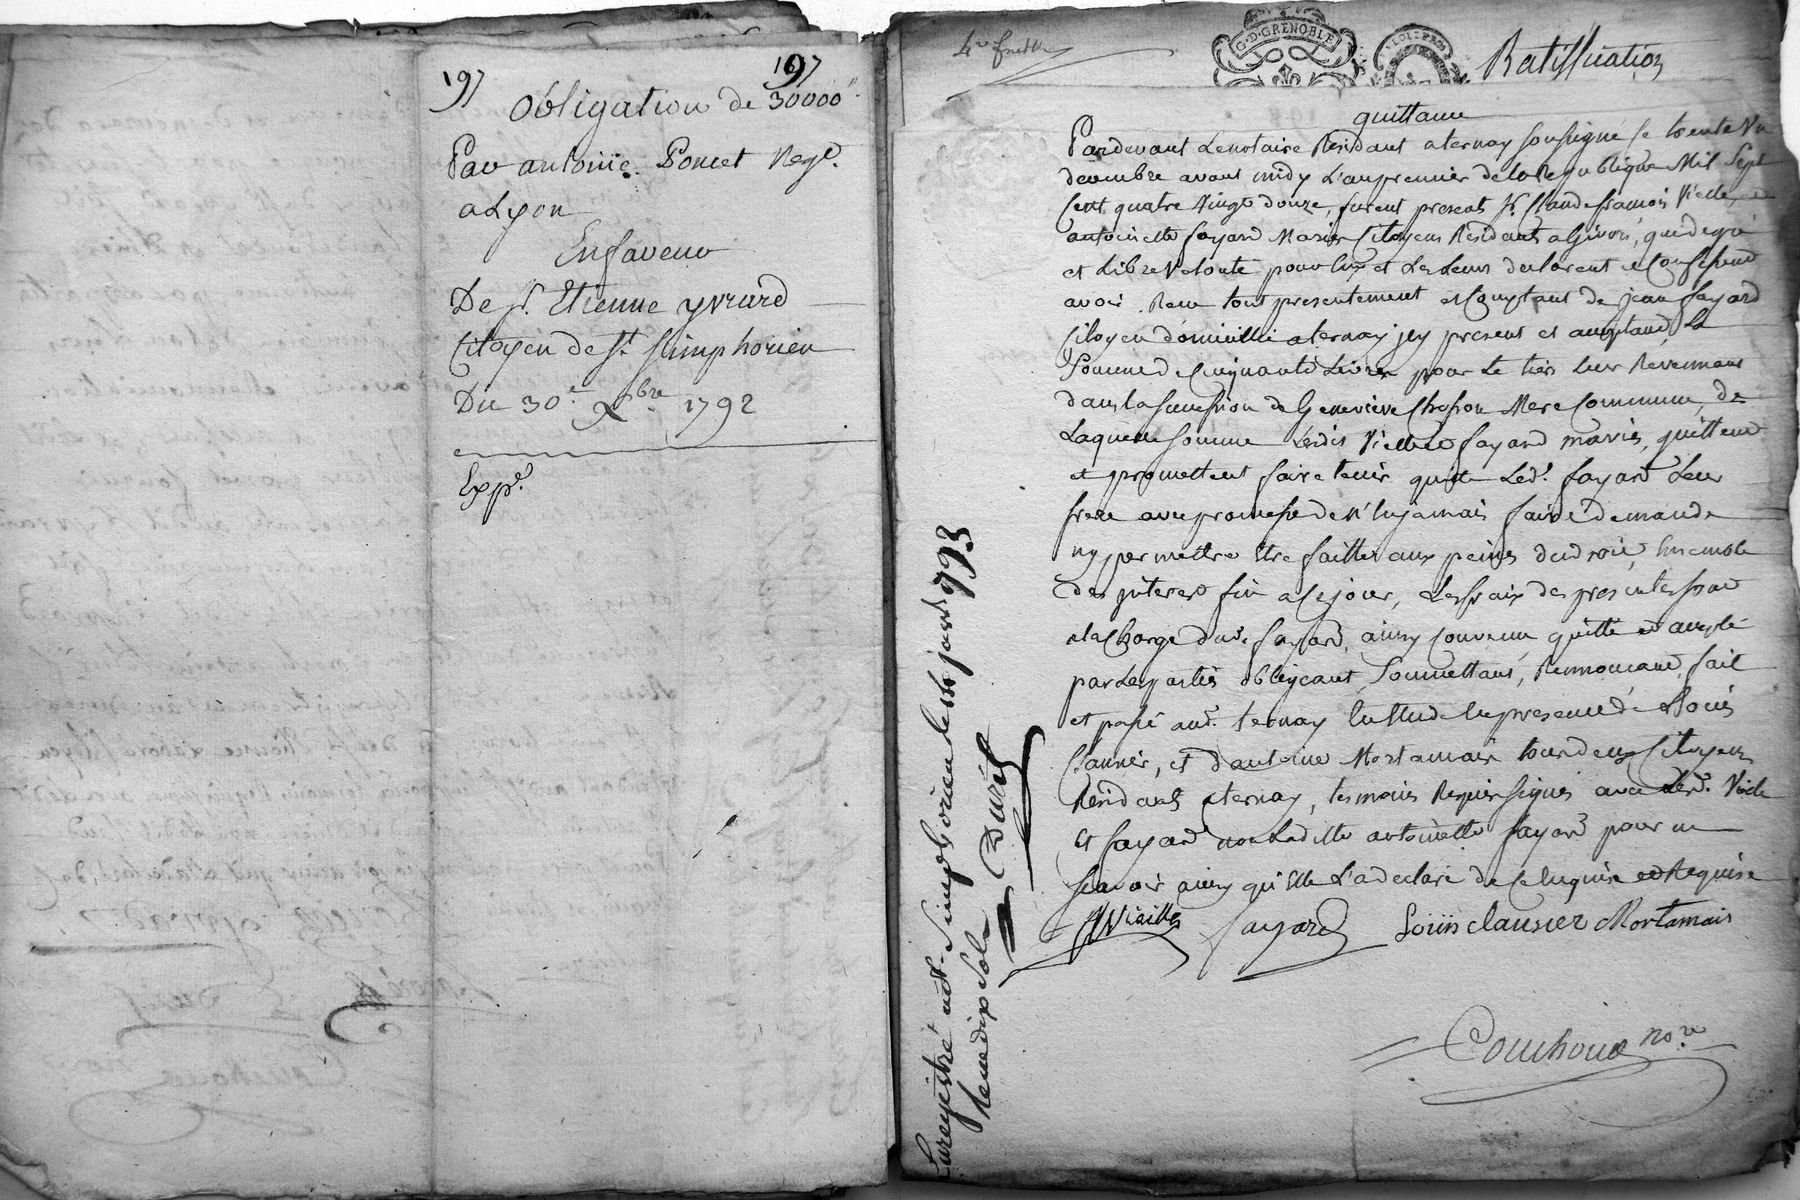 197
197
obligation de 30000"
Par antoine Poncet Neg.t
a Lyon
En faveur
De Sr. Etienne yvrard
Citoyen de St. Simphorien
Du 30e Xbre 1792
Exp.é
G.D.GRENOBLE
Ratiffication
quittance
Pardevant Lenotaire Residant aternay soussigné le trente Un
decembre avant midy L'anpremier dela Republique Mil Sept
Cent quatre Vingt douze, furent present Sr. Claude francois Vielle, et
antoinette fayard Mariés Citoyens Residants a Givors, qui de gré
et Libre Volonté pour Eux et Les Leurs declarent et Confessent
avoir Recu tout presentement et Comptant de jean fayard
Citoyen domicillié aternay jcy present et acceptant La
Somme de Cinquante Livres pour Le tiers Leur Revennant
dans la succession de Genevieve Chosson Mere Commune, de
Laquelle somme Lesdis Vielle et fayard mariés, quittent
et promettent faire tenir quitte Led. fayard Leur
frere avec promesse de N'luy jamais faire demande
ny permettre Etre faitte aux peines de droit, Ensemble
des jnterest fin a Ce jour, Les fraix des presentes sont
a la Charge dud. fayard, ainsy convenu, quitté et accepté
par Les parties obligeant, Soumettant, Rennonceant, fait
et passé aud. ternay En Etude En presence de Louis
Clausier, et d'antoine Mortamais tous deux Citoyens
Residants aternay, temoins Requis signés avec Led. Vielle
Et fayard non Laditte antoinette fayard pour ne
scavoir ainsy qu'Elle L'a declaré de Ce Enquise et Requise
Vieille fayard Loüis clausier Mortamais
Couchoud no.re
Enregistré a St. Simphorien le janv. 1793
Recu dix sols Duril